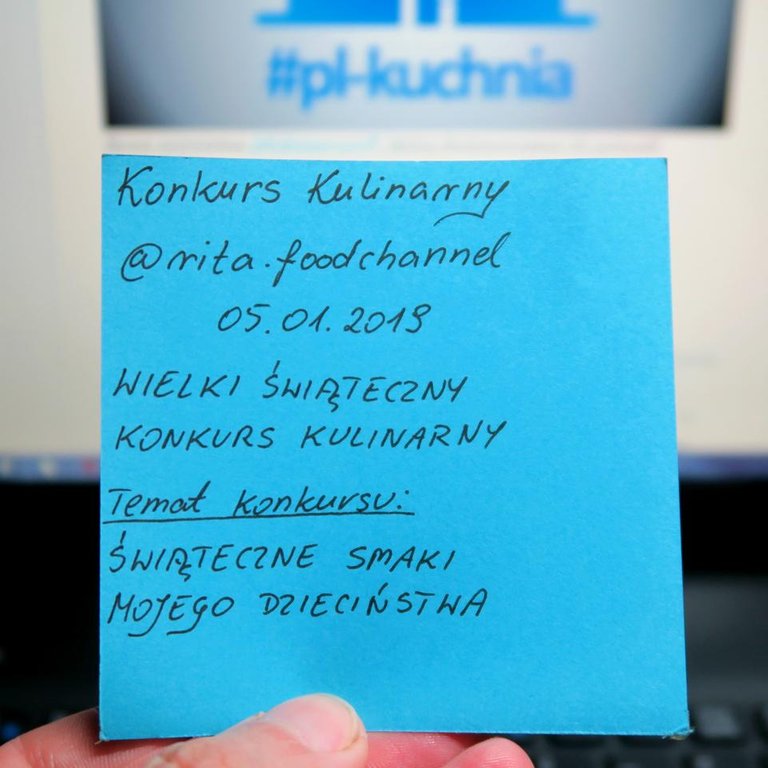 #pl-kuchnia
Konkurs Kulinarny
@rita.foodchannel
05.01.2019
WIELKI ŚWIĄTECZNY
KONKURS KULINARNY
Temat konkursu:
ŚWIĄTECZNE SMAKI
MOJEGO DZIECIŃSTWA